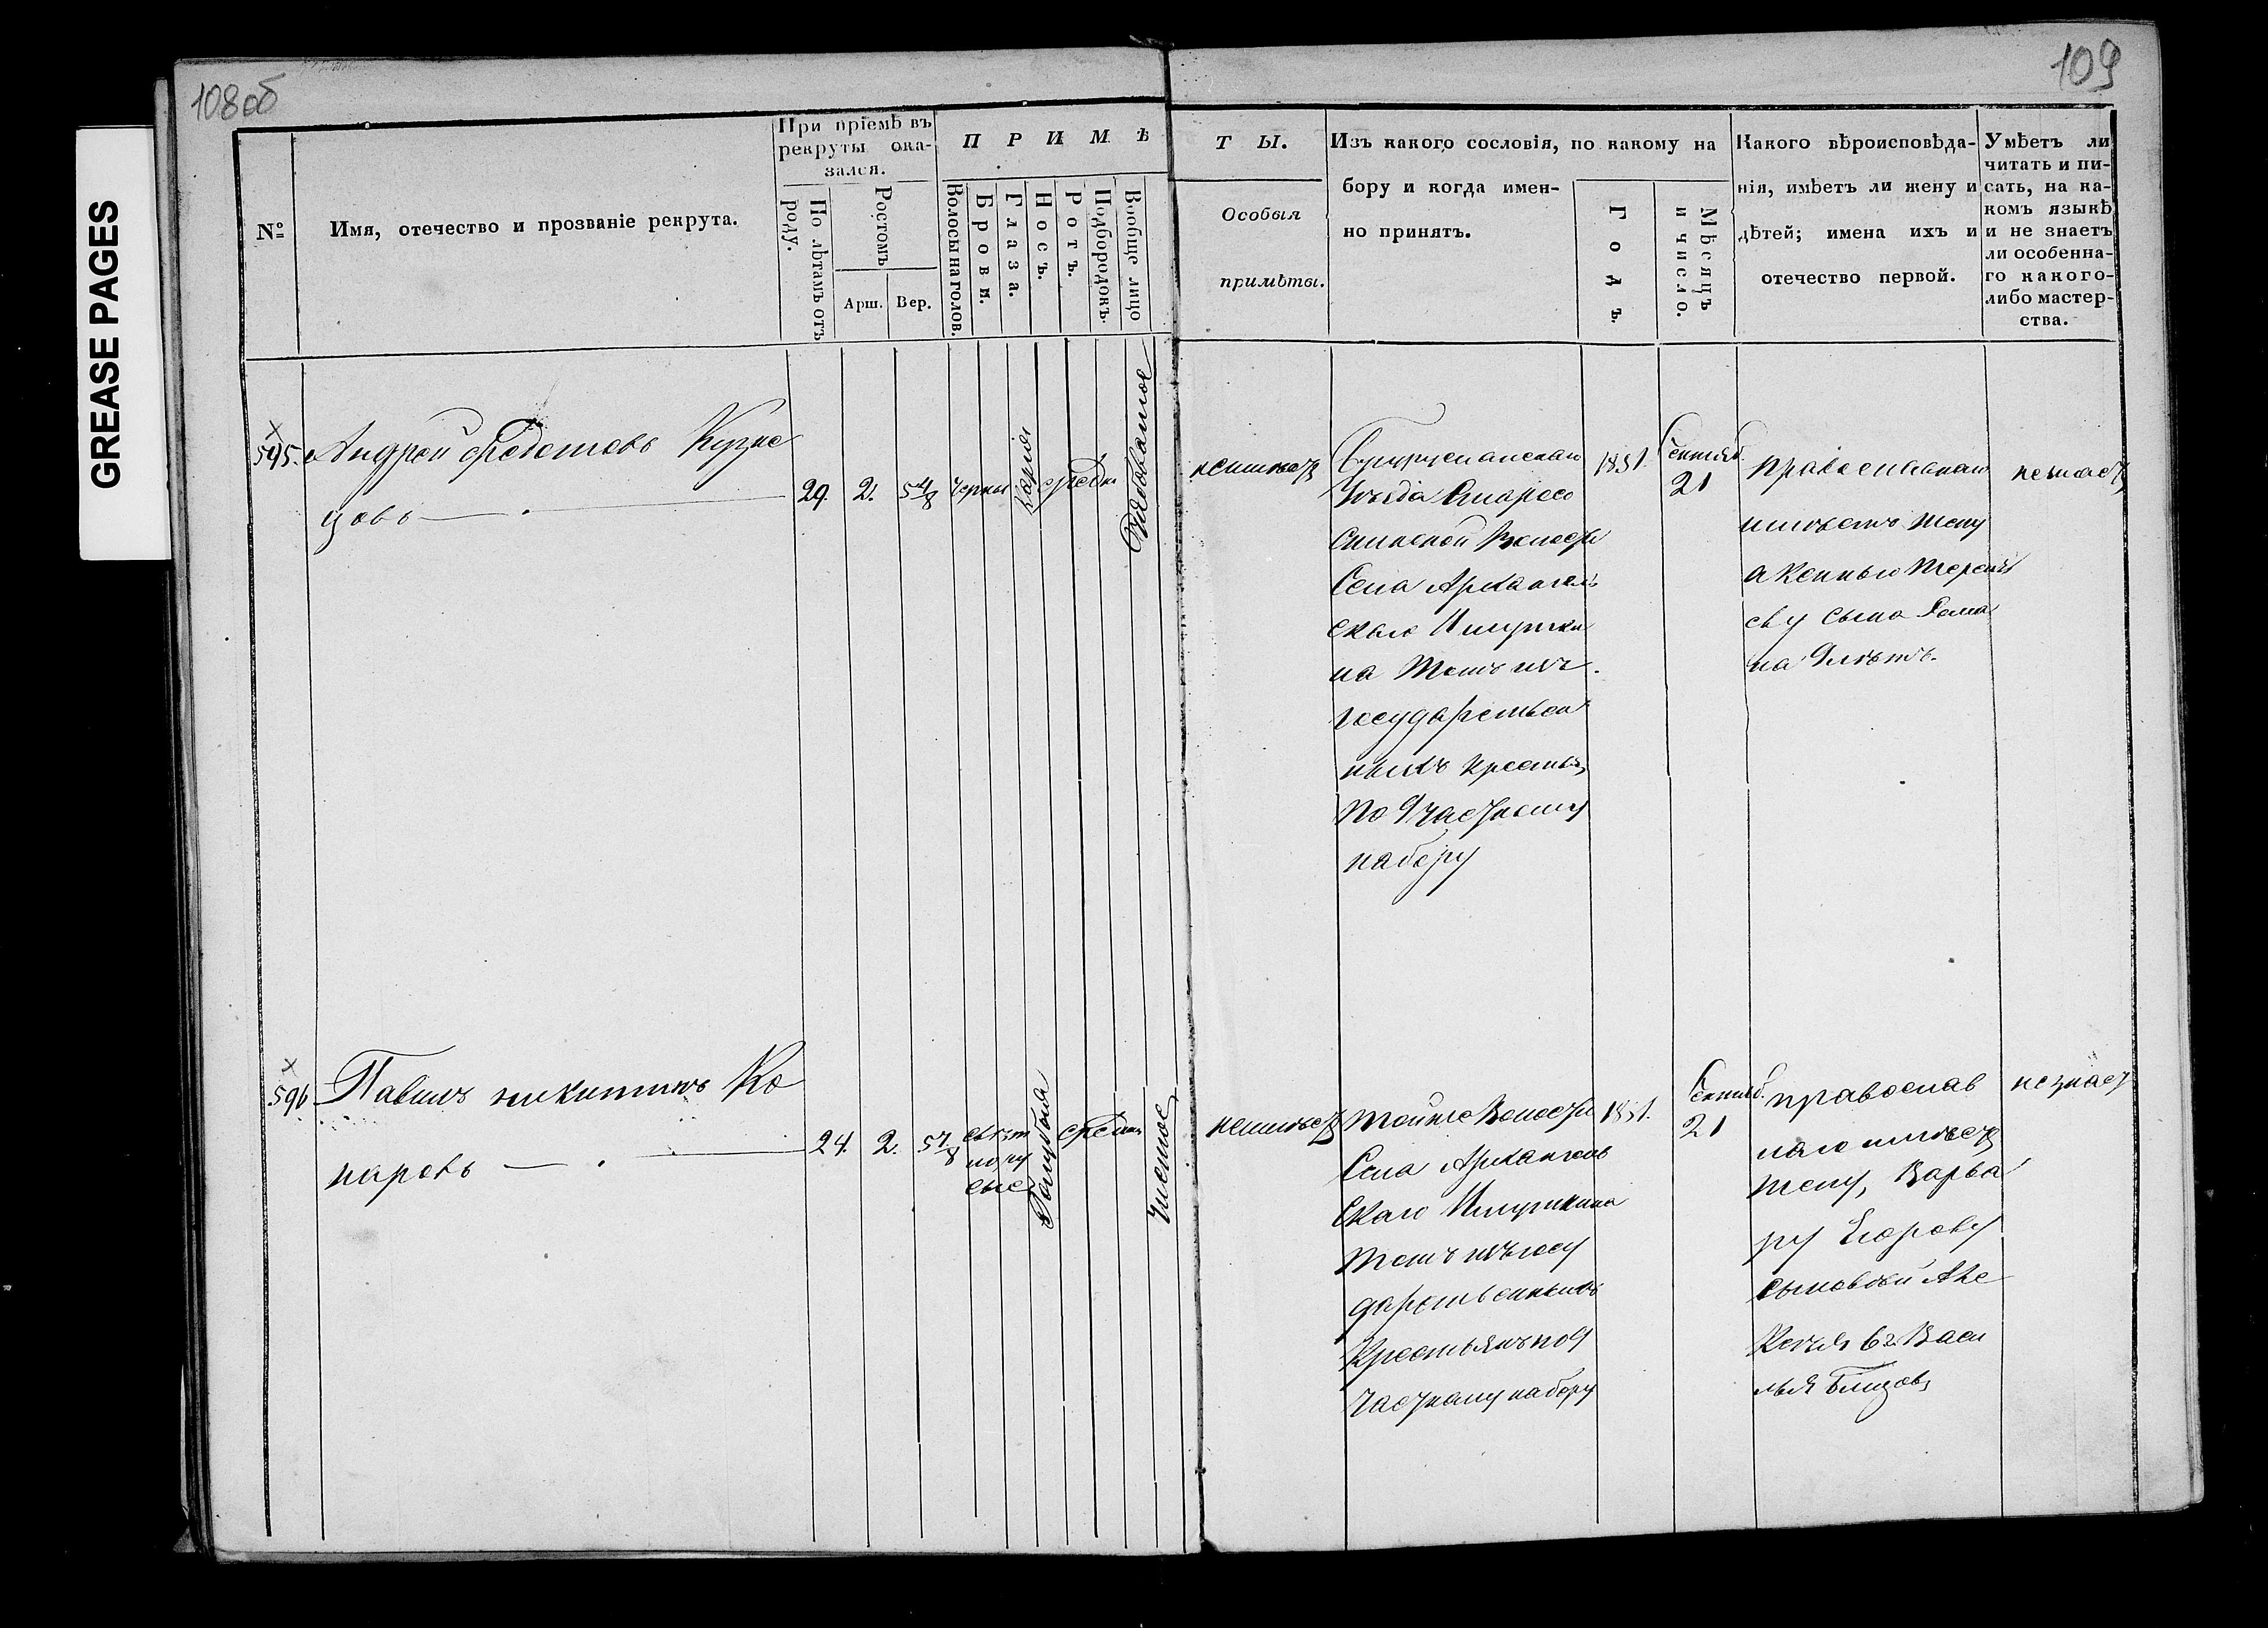 GREASE PAGES
108об
109
№
Имя, отечество и прозваніе рекрута.
При пріемѣ въ
рекруты ока-
зался.
По лѣтамъ отъ
роду.
Ростомъ
Арш.
Вер.
П Р И М Ѣ
Волосы на голов.
Брови.
Глаза.
Носъ.
Ротъ.
Подбородокъ.
Вообще лицо
Т Ы.
Особыя
примѣты.
Изъ какого сословія, по какому на
бору и когда имен-
но принятъ.
Годъ.
Мѣсяцъ
и число.
Какого вѣроисповѣда-
нія, имѣетъ ли жену и
дѣтей; имена ихъ и
отечество первой.
Умѣетъ ли
читать и пи-
сать, на ка-
комъ языкѣ
и не знаетъ
ли особенна-
го какого-
либо мастер-
ства.
595.
Андрей Федотовъ Кузне
цовъ
29.
2.
5 4/8
черны
карія
средн
неимѣет
Бугурусланскаго
Уѣзда
волости
Села Архангель
скаго
на тожъ изъ
государствен
ныхъ крестьянъ
по 9 частному
набору
1851.
Сентяб.
21
православнаго
имѣетъ жену
Аксинью Терентье
еву сына Рома
на 9 лѣтъ.
незнает
596
Павелъ Никитинъ Ко
наровъ
24.
2.
5 7/8
свѣт
лору
сые
Голубыя
средни
Чистое
неимѣет
тойже волости
Села Архангель
скаго
тожъ изъ госу
дарственныхъ
Крестьянъ по 9
частному набору
1851.
Сентяб.
21
православ
наго имѣет
жену, Варва
ру Егорову
сыновей Але
ксѣя 6 г. Васи
лья
незнает